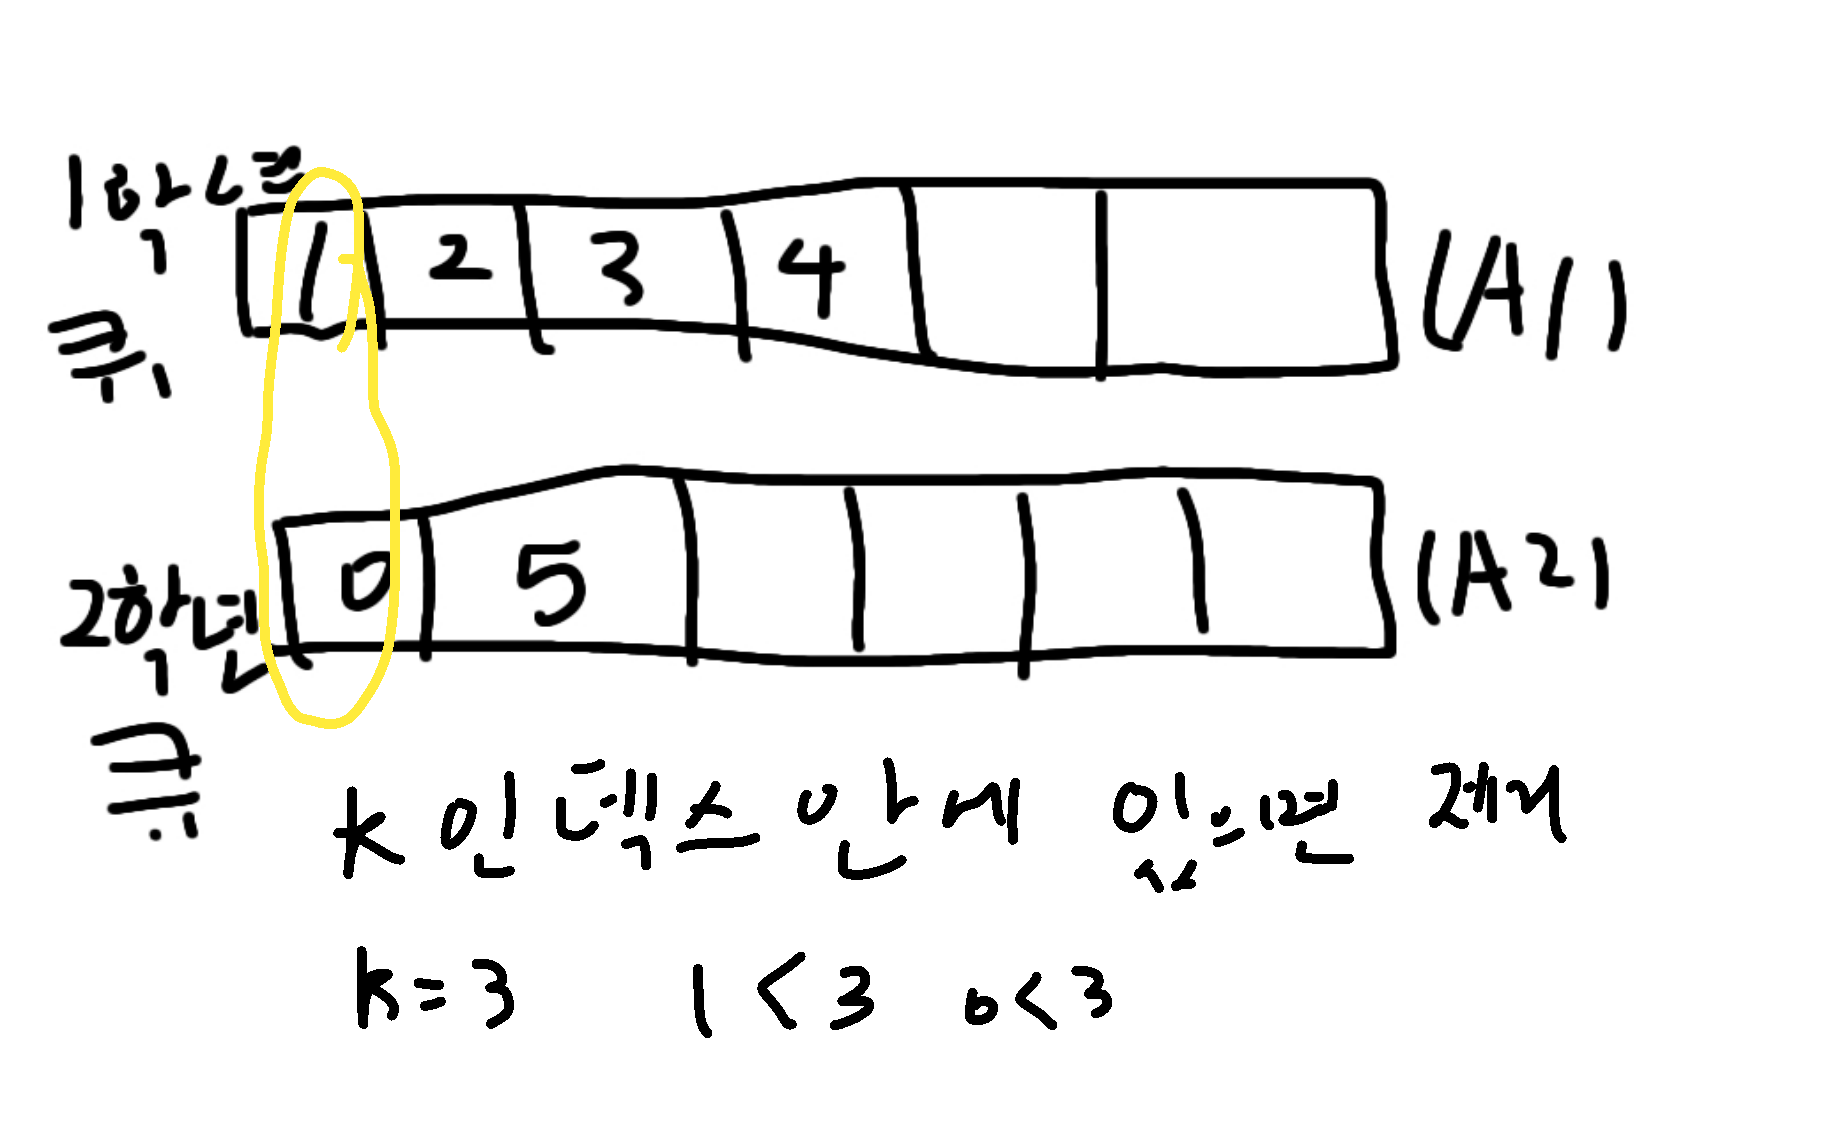 1학년
큐
1 2 3 4
(A1)
2학년
큐
0 5
(A2)
K 인덱스 안에 있으면 제거
k=3 1<3 0<3